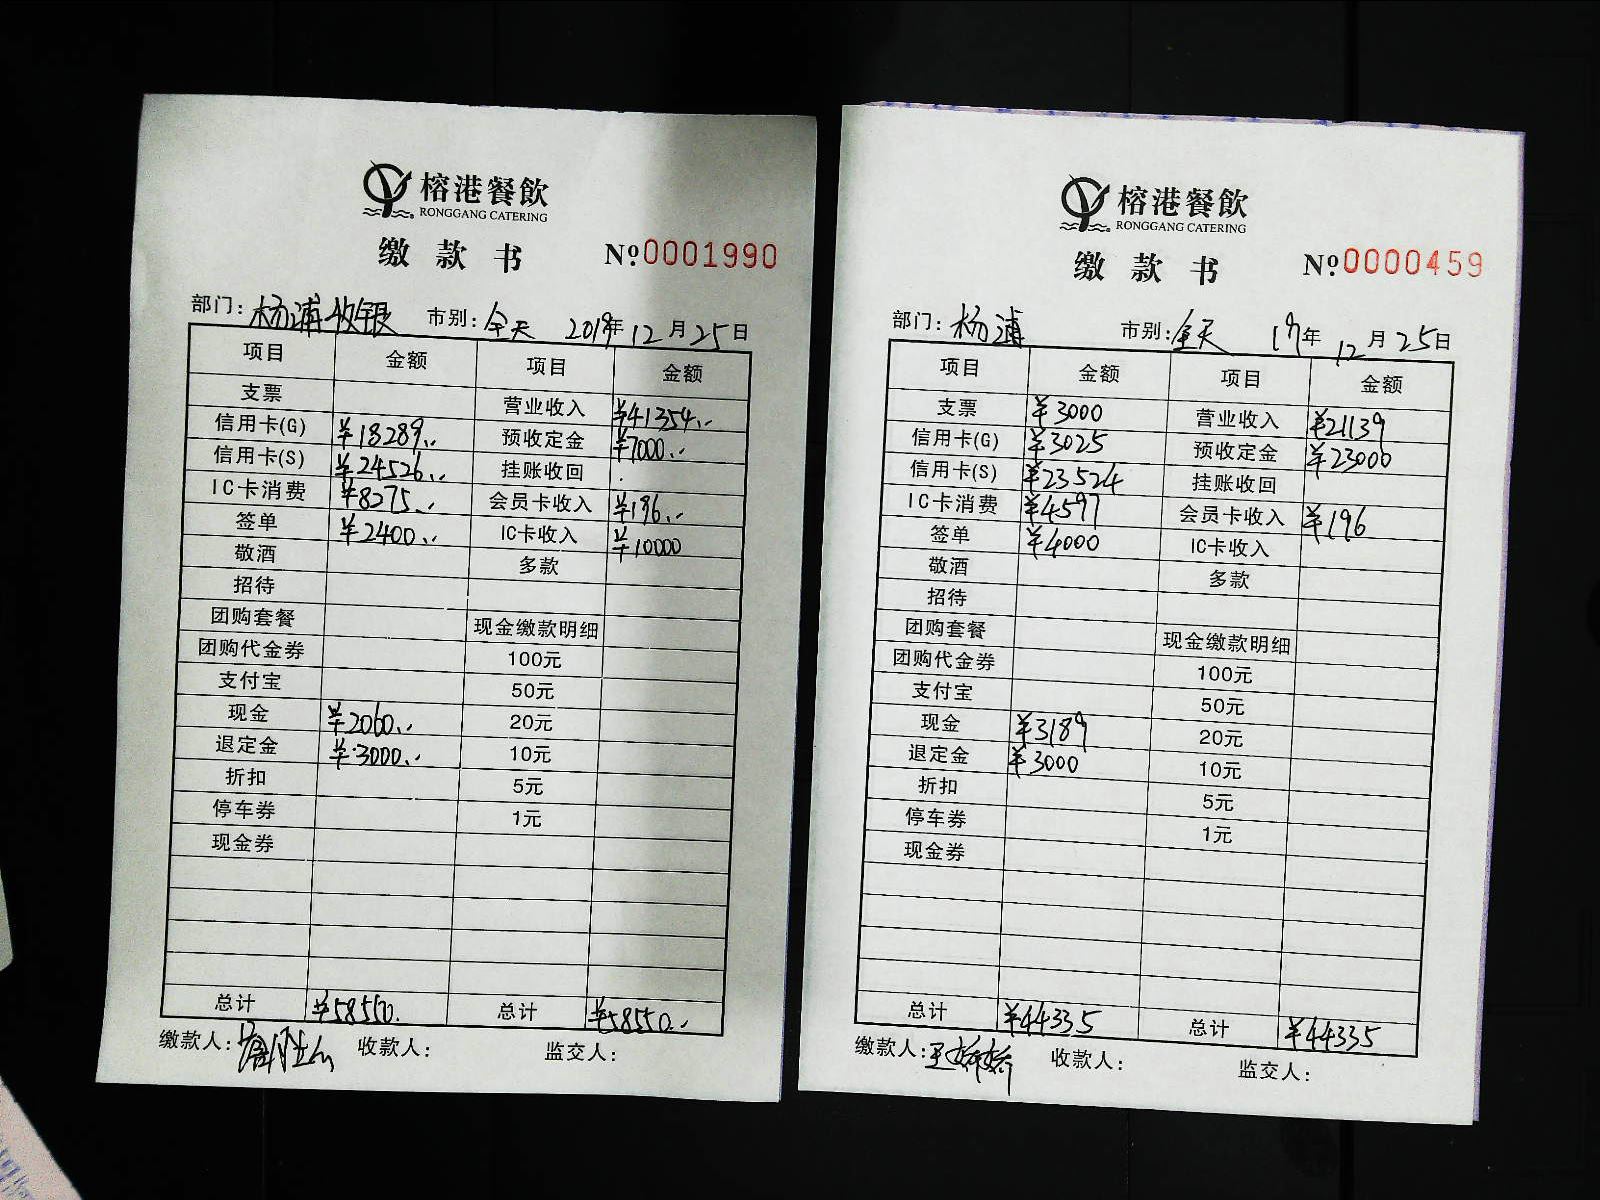 榕港餐飲
RONGGANG CATERING
缴款书 №0001990
部门：杨浦收银 市别：全天 2019年12月25日
项目 金额 项目 金额
支票 营业收入 ¥41354
信用卡(G) ¥18289 预收定金 ¥7000
信用卡(S) ¥24526 挂账收回
IC卡消费 ¥8275 会员卡收入 ¥196
签单 ¥2400 IC卡收入 ¥10000
敬酒 多款
招待
团购套餐 现金缴款明细
团购代金券 100元
支付宝 50元
现金 ¥2060 20元
退定金 ¥3000 10元
折扣 5元
停车券 1元
现金券
总计 ¥58550 总计 ¥58550
缴款人： 收款人： 监交人：
榕港餐飲
RONGGANG CATERING
缴款书 №0000459
部门：杨浦 市别：全天 19年12月25日
项目 金额 项目 金额
支票 ¥3000 营业收入 ¥21139
信用卡(G) ¥3025 预收定金 ¥23000
信用卡(S) ¥23524 挂账收回
IC卡消费 ¥4597 会员卡收入 ¥196
签单 ¥4000 IC卡收入
敬酒 多款
招待
团购套餐 现金缴款明细
团购代金券 100元
支付宝 50元
现金 ¥3189 20元
退定金 ¥3000 10元
折扣 5元
停车券 1元
现金券
总计 ¥44335 总计 ¥44335
缴款人：王娇娇 收款人： 监交人：